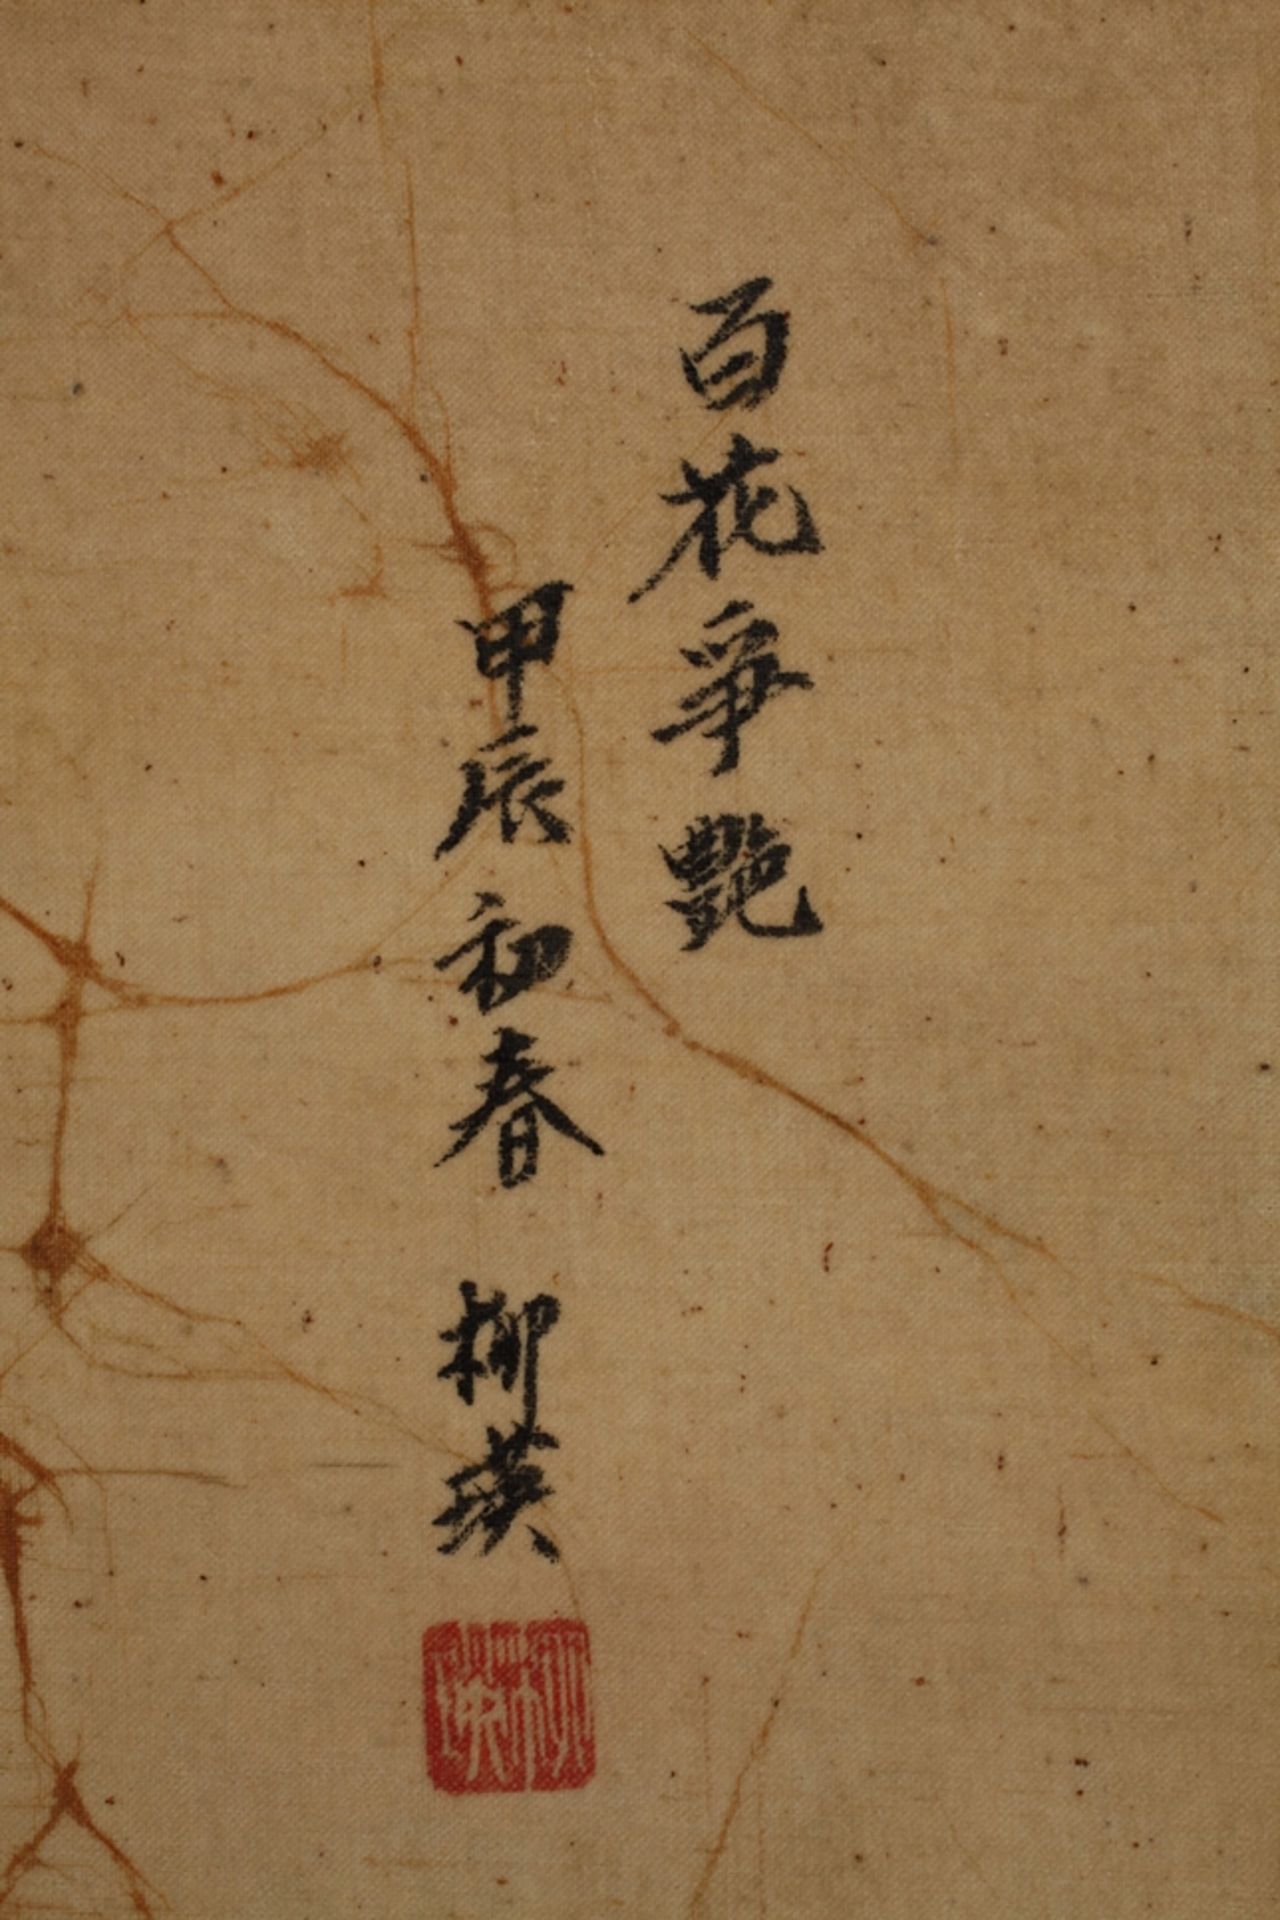 百花爭艷
甲辰初春 柳瑛
柳瑛